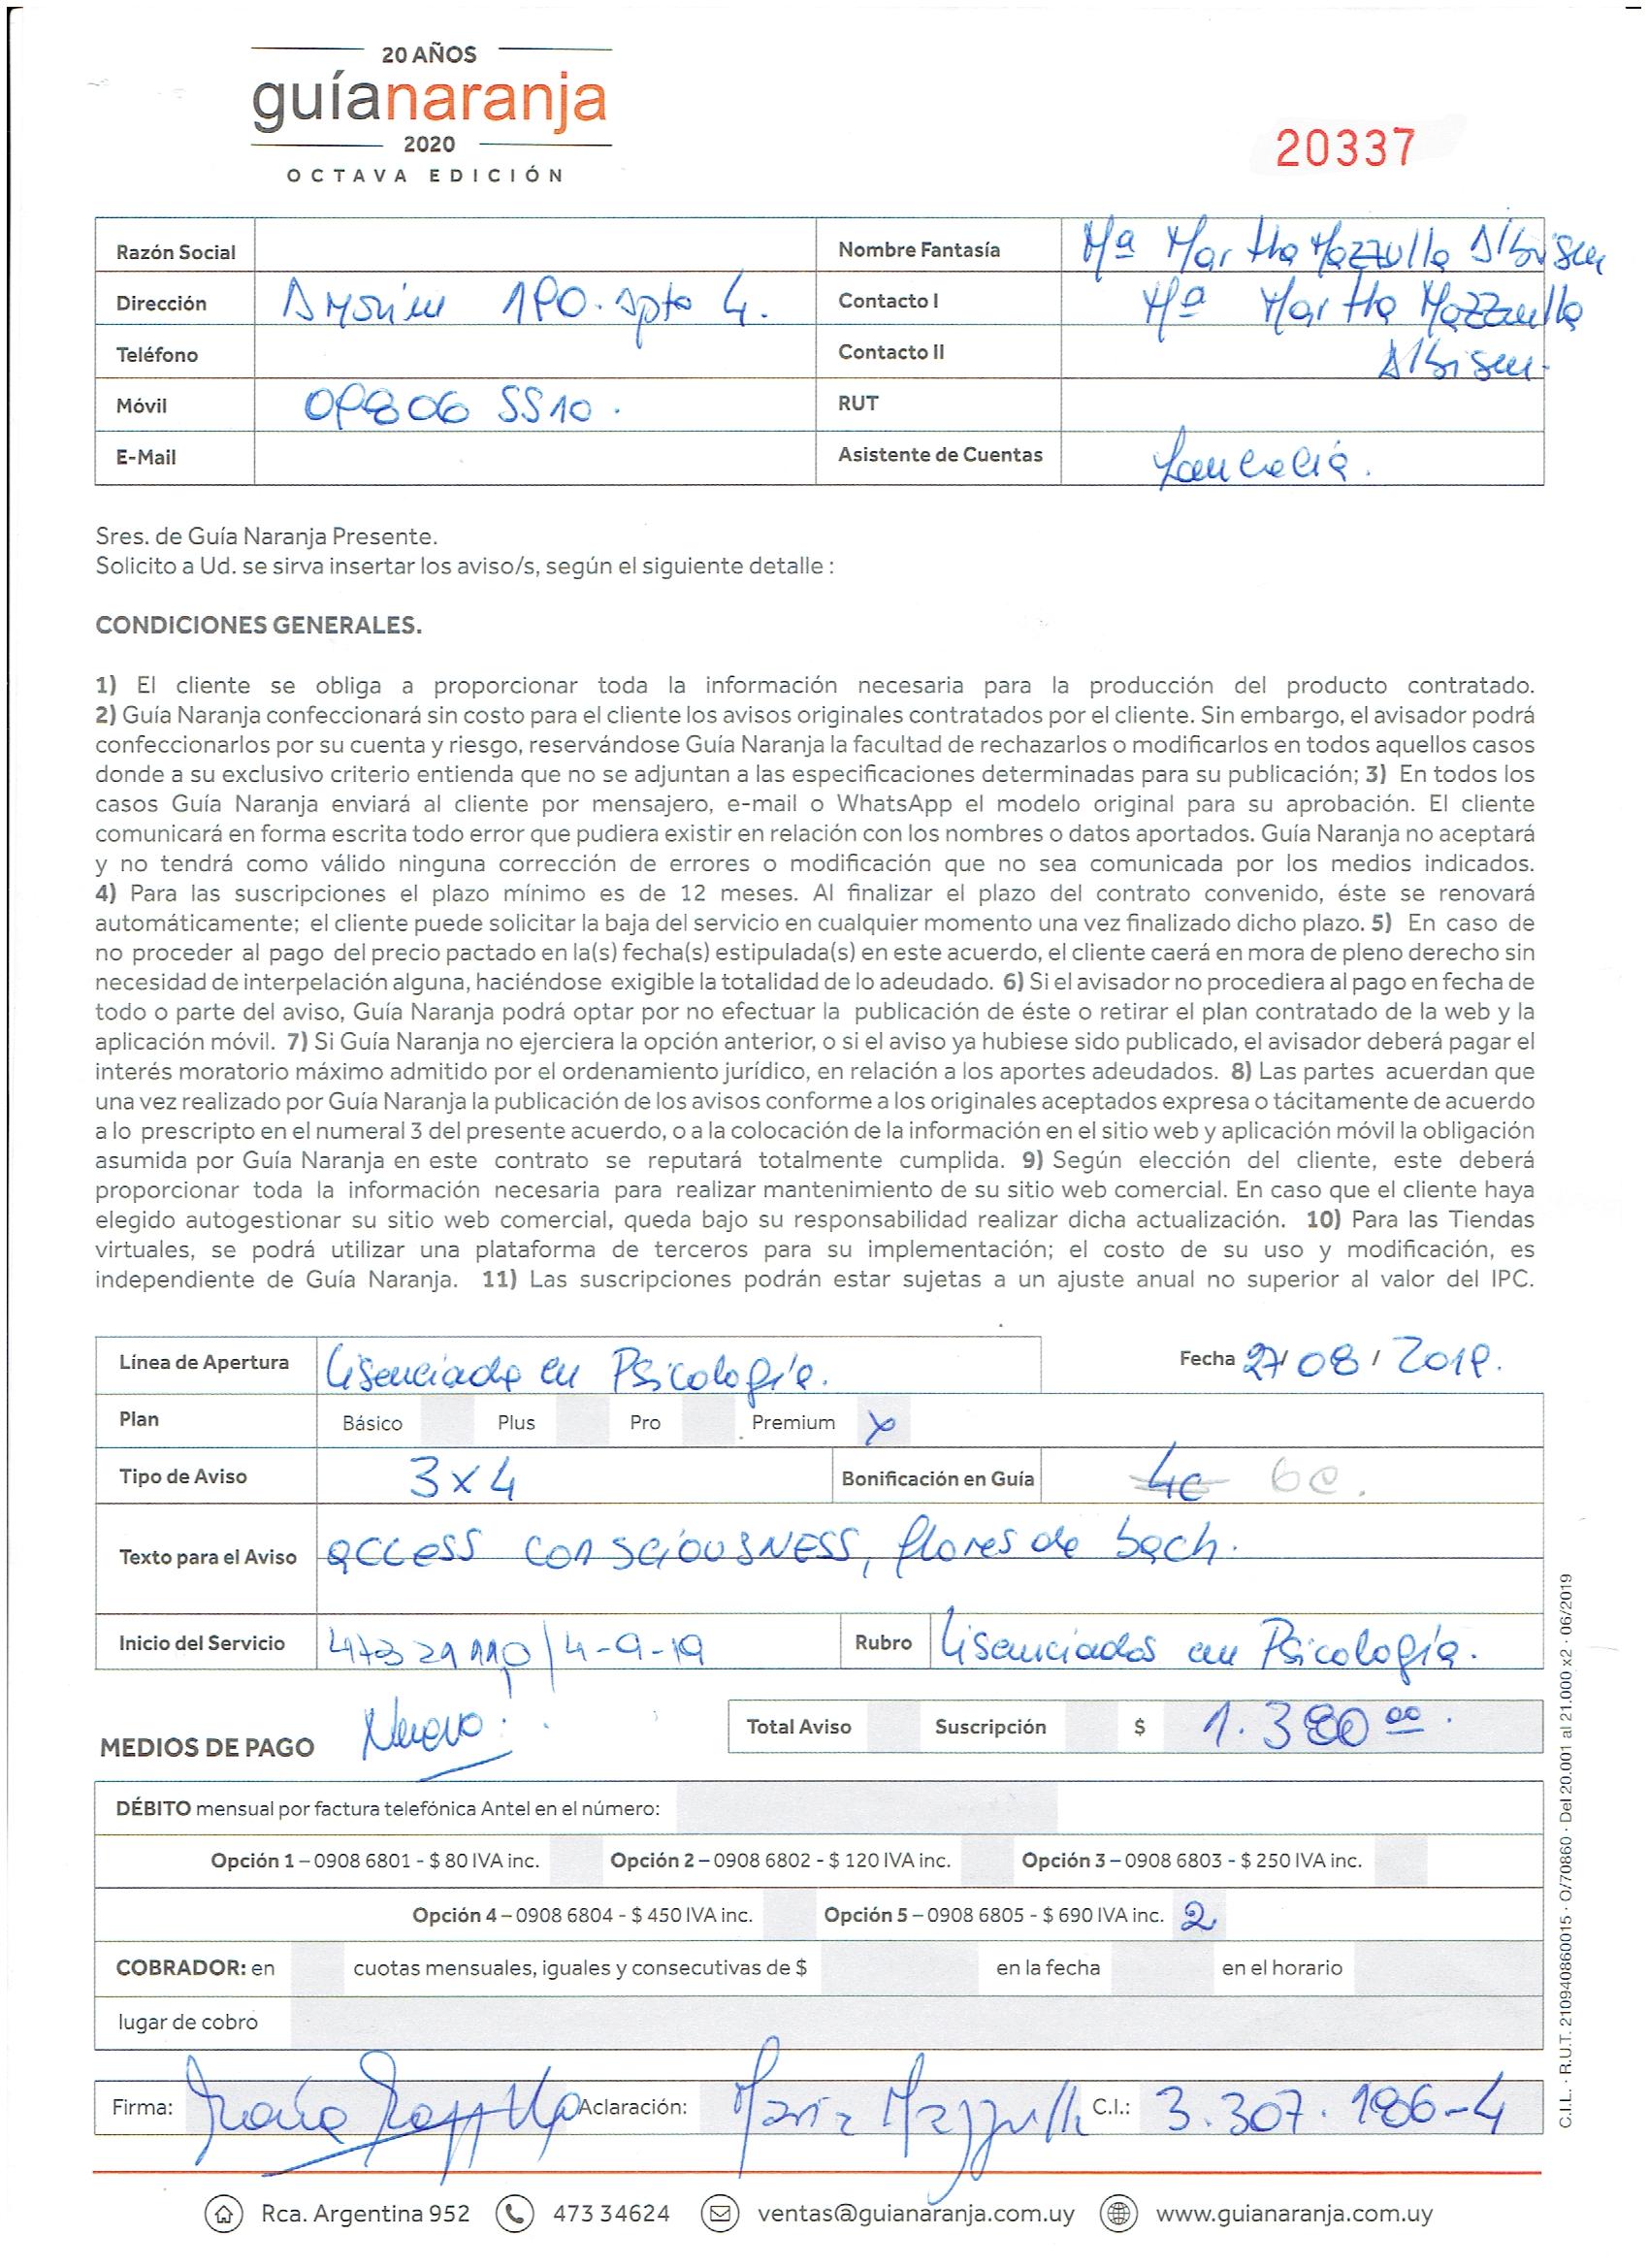 20 AÑOS
guíanaranja
2020
OCTAVA EDICIÓN
20337
Razón Social
Nombre Fantasía Mª Martha Mazzulla Albisu
Dirección Amorim 190. Apto 4.
Contacto I Mª Martha Mazzulla
Teléfono
Contacto II Albisu.
Móvil 09806 5510.
RUT
E-Mail
Asistente de Cuentas
Sres. de Guía Naranja Presente.
Solicito a Ud. se sirva insertar los aviso/s, según el siguiente detalle :
CONDICIONES GENERALES.
1) El cliente se obliga a proporcionar toda la información necesaria para la producción del producto contratado.
2) Guía Naranja confeccionará sin costo para el cliente los avisos originales contratados por el cliente. Sin embargo, el avisador podrá
confeccionarlos por su cuenta y riesgo, reservándose Guía Naranja la facultad de rechazarlos o modificarlos en todos aquellos casos
donde a su exclusivo criterio entienda que no se adjuntan a las especificaciones determinadas para su publicación; 3) En todos los
casos Guía Naranja enviará al cliente por mensajero, e-mail o WhatsApp el modelo original para su aprobación. El cliente
comunicará en forma escrita todo error que pudiera existir en relación con los nombres o datos aportados. Guía Naranja no aceptará
y no tendrá como válido ninguna corrección de errores o modificación que no sea comunicada por los medios indicados.
4) Para las suscripciones el plazo mínimo es de 12 meses. Al finalizar el plazo del contrato convenido, éste se renovará
automáticamente; el cliente puede solicitar la baja del servicio en cualquier momento una vez finalizado dicho plazo. 5) En caso de
no proceder al pago del precio pactado en la(s) fecha(s) estipulada(s) en este acuerdo, el cliente caerá en mora de pleno derecho sin
necesidad de interpelación alguna, haciéndose exigible la totalidad de lo adeudado. 6) Si el avisador no procediera al pago en fecha de
todo o parte del aviso, Guía Naranja podrá optar por no efectuar la publicación de éste o retirar el plan contratado de la web y la
aplicación móvil. 7) Si Guía Naranja no ejerciera la opción anterior, o si el aviso ya hubiese sido publicado, el avisador deberá pagar el
interés moratorio máximo admitido por el ordenamiento jurídico, en relación a los aportes adeudados. 8) Las partes acuerdan que
una vez realizado por Guía Naranja la publicación de los avisos conforme a los originales aceptados expresa o tácitamente de acuerdo
a lo prescripto en el numeral 3 del presente acuerdo, o a la colocación de la información en el sitio web y aplicación móvil la obligación
asumida por Guía Naranja en este contrato se reputará totalmente cumplida. 9) Según elección del cliente, este deberá
proporcionar toda la información necesaria para realizar mantenimiento de su sitio web comercial. En caso que el cliente haya
elegido autogestionar su sitio web comercial, queda bajo su responsabilidad realizar dicha actualización. 10) Para las Tiendas
virtuales, se podrá utilizar una plataforma de terceros para su implementación; el costo de su uso y modificación, es
independiente de Guía Naranja. 11) Las suscripciones podrán estar sujetas a un ajuste anual no superior al valor del IPC.
Línea de Apertura Lisenciada en Psicología.
Fecha 27/ 08 / 2019.
Plan Básico Plus Pro Premium X
Tipo de Aviso 3x4
Bonificación en Guía 4c 6c.
Texto para el Aviso access consciousness, flores de bach.
Inicio del Servicio 47329110/4-9-19
Rubro Lisenciados en Psicología.
MEDIOS DE PAGO Nuevo
Total Aviso Suscripción $ 1.380 00.
DÉBITO mensual por factura telefónica Antel en el número:
Opción 1 – 0908 6801 - $ 80 IVA inc. Opción 2 – 0908 6802 - $ 120 IVA inc. Opción 3 – 0908 6803 - $ 250 IVA inc.
Opción 4 – 0908 6804 - $ 450 IVA inc. Opción 5 – 0908 6805 - $ 690 IVA inc. 2
COBRADOR: en cuotas mensuales, iguales y consecutivas de $ en la fecha en el horario
lugar de cobro
Firma: María Mazzulla Aclaración: María Mazzulla C.I.: 3.307.186-4
C.I.L. · R.U.T. 210940860015 · O/70860 · Del 20.001 al 21.000 x2 · 06/2019
Rca. Argentina 952 473 34624 ventas@guianaranja.com.uy www.guianaranja.com.uy